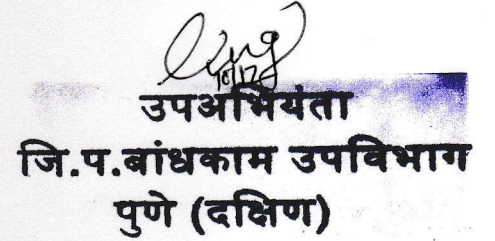 उपअभियंता
जि.प.बांधकाम उपविभाग
पुणे (दक्षिण)